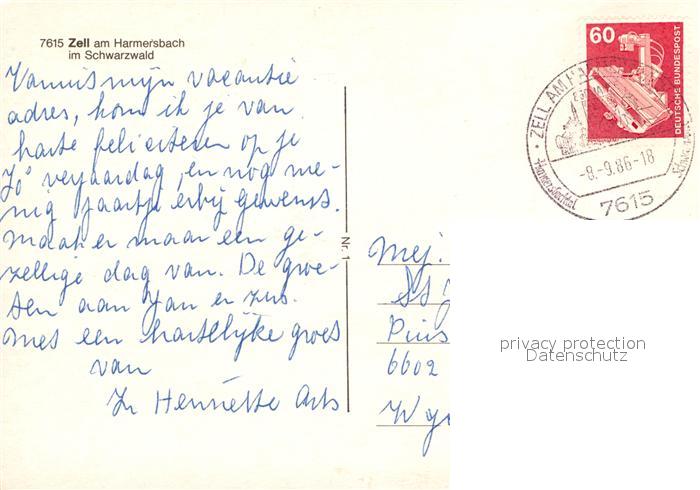 7615 Zell am Harmersbach
im Schwarzwald
Vanuit mijn vacantie
adres, kom ik je van
harte feliciteren op je
70e verjaardag, en nog me-
nig jaartje erbij gewenst.
Maak er maar een ge-
zellige dag van. De groe-
ten aan Jan en zus.
Met een hartelijke groet
van
Zr Henriette Arts
Nr. 1
60
DEUTSCHE BUNDESPOST
ZELL AM HA
-8.-9.86-18
Harmersbachtal
7615
Mej.
Pius
6602
Wy
privacy protection
Datenschutz